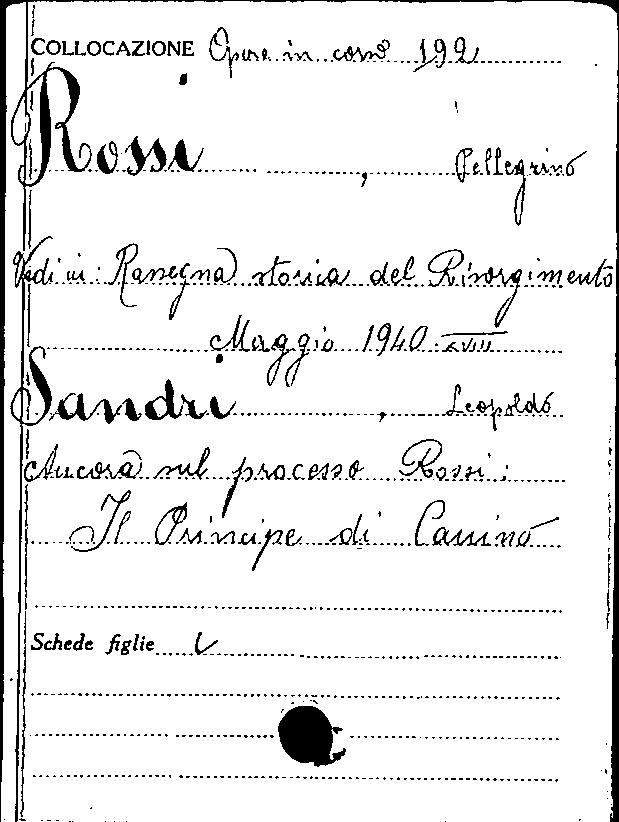 COLLOCAZIONE Opere in corso 192
Rossi, Pellegrino
Vedi in: Rassegna storica del Risorgimento
Maggio 1940. XVIII
Sandri, Leopoldo
Ancora sul processo Rossi:
Il Principe di Canino
Schede figlie